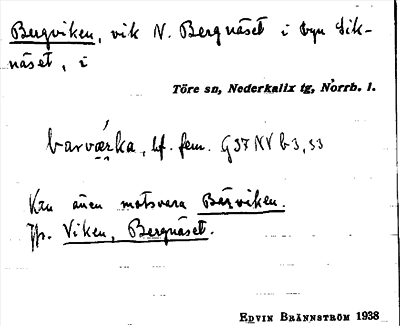 Bergviken, vik N. Bergnäset i byn Sik-
näset, i
Töre sn, Nederkalix tg, Norrb. l.
barvǽrka, bf. fem. G 37 NV b 3, 33
Kan även motsvara Bärviken.
Jfr. Viken, Bergnäset.
EDVIN BRÄNNSTRÖM 1938